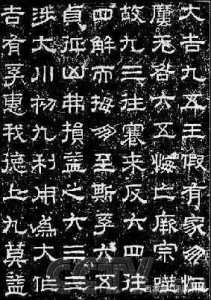 大吉九五王假有家勿恤
厲无咎六五悔亡厥宗噬
故九三往蹇來反六四往
四解而拇朋至斯孚六五
貞征凶弗損益之六三三
涉大川初九利用為大作
吉有孚惠我德上九莫益